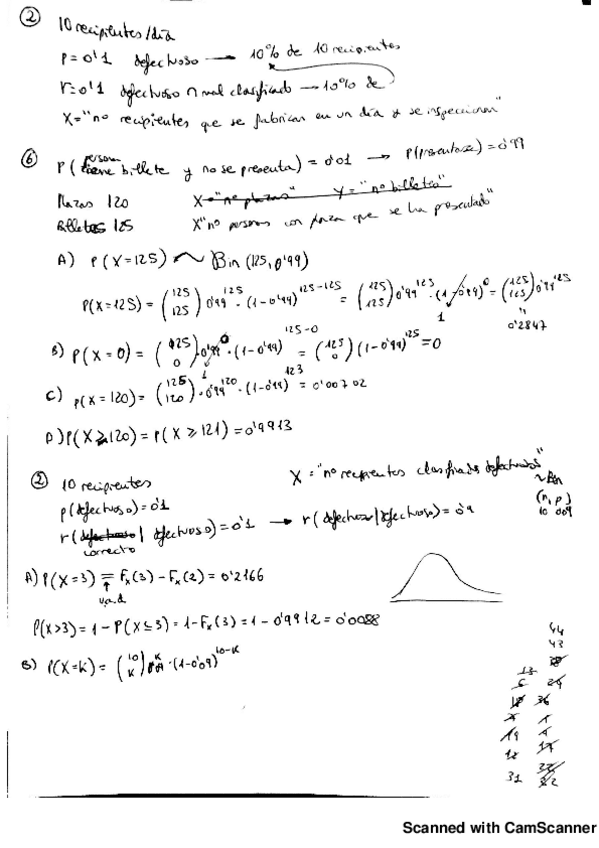 ② 10 recipientes/día
p=0'1 defectuoso → 10% de 10 recipientes
r=0'1 defectuoso ∩ mal clasificado → 10% de
X="nº recipientes que se fabrican en un día y se inspeccionan"
⑥ P(persona tiene billete y no se presenta)=0'01 → P(presentarse)=0'99
Plazas 120 X="nº plazas" Y="nº billetes"
Billetes 125 X"nº personas con plaza que se ha presentado"
A) P(X=125) ~ Bin(125, 0'99)
P(X=125) = (125 125) 0'99^125 · (1-0'99)^125-125 = (125 125) 0'99^125 · (1-0'99)^0 = (125 125) 0'99^125
1 0'2847
B) P(X=0) = (125 0) · 0'99^0 · (1-0'99)^125-0 = (125 0) (1-0'99)^125 = 0
1
C) P(X=120) = (125 120) · 0'99^120 · (1-0'99)^123 = 0'00702
D) P(X>120) = P(X≥121) = 0'9913
② 10 recipientes X="nº recipientes clasificados defectuosos"
p(defectuoso)=0'1 ~ Bin
(n, p)
r(defectuoso correcto | defectuoso)=0'1 → r(defectuoso | defectuoso)=0'9
10 0'09
A) P(X=3) = Fx(3) - Fx(2) = 0'2166
v.a.d
P(X>3) = 1 - P(X≤3) = 1 - Fx(3) = 1 - 0'9912 = 0'0088
B) P(X=K) = (10 K) 0'09^K · (1-0'09)^10-K
44
43
13
6 29
18 36
19
12 17
31
Scanned with CamScanner